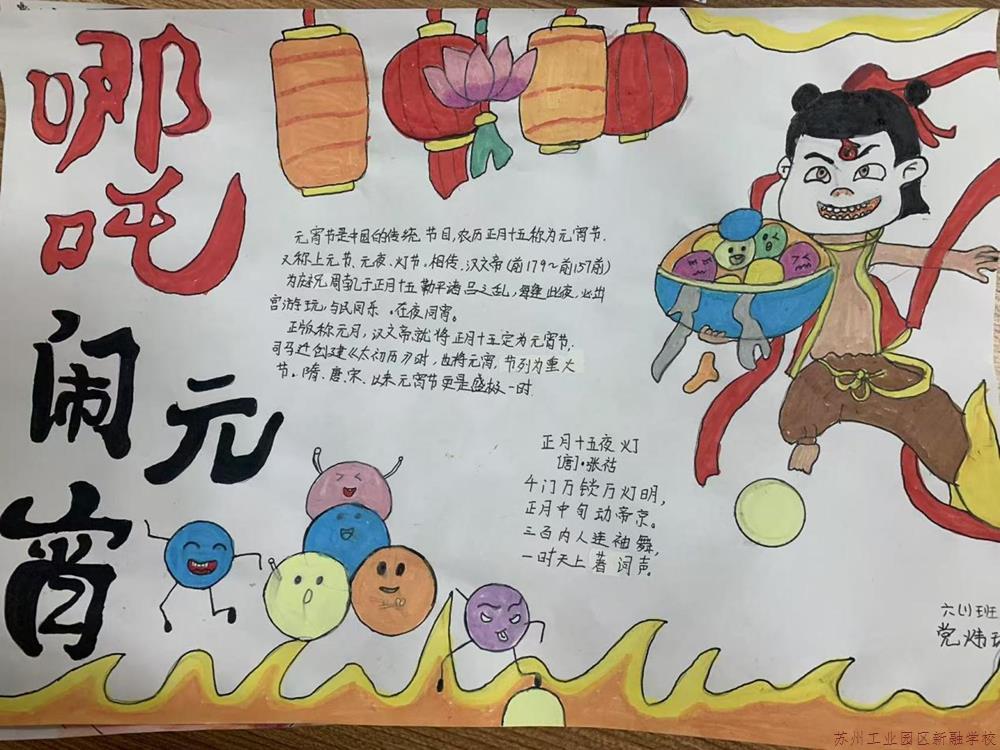 哪吒
闹元
宵
元宵节是中国的传统节目,农历正月十五称为元宵节.
又称上元节、元夜、灯节。相传,汉文帝(前179~前157前)
为庆祝周勃于正月十五勘平诸吕之乱,每逢此夜,必出
宫游玩,与民同乐。在夜同宵。
正版称元月,汉文帝就将正月十五定为元宵节,
司马迁创建《太初历》时,也将元宵节列为重大
节。隋、唐、宋、以来元宵节更是盛极一时.
正月十五夜灯
[唐]·张祜
千门万锁万灯明,
正月中旬动帝京。
三百内人连袖舞,
一时天上著词声.
六(1)班
党炜
苏州工业园区新融学校